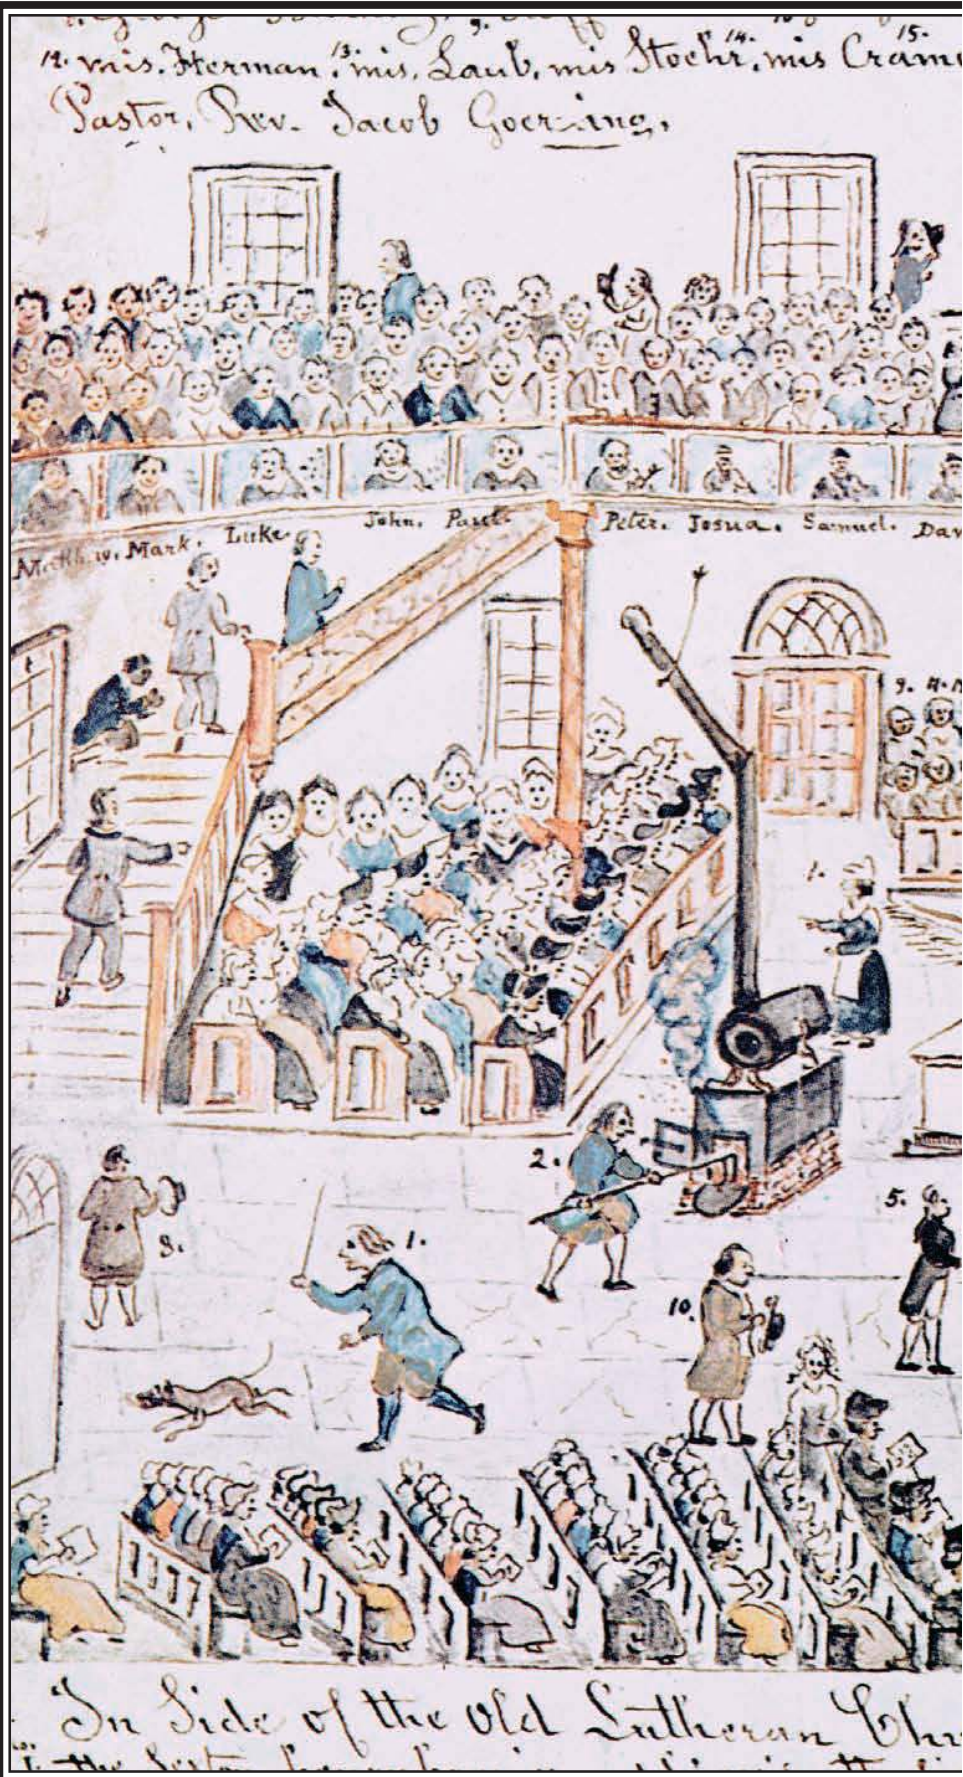 George
12. mis. Herman. 13. mis. Laub. mis Stoehr. 14. mis Crame 15.
Pastor, Rev. Jacob Goering.
Mathew. Mark. Luke. John. Paul. Peter. Josua. Samuel. Dav
9.
1.
2.
5.
8.
1.
10.
In Side of the Old Lutheran Chu